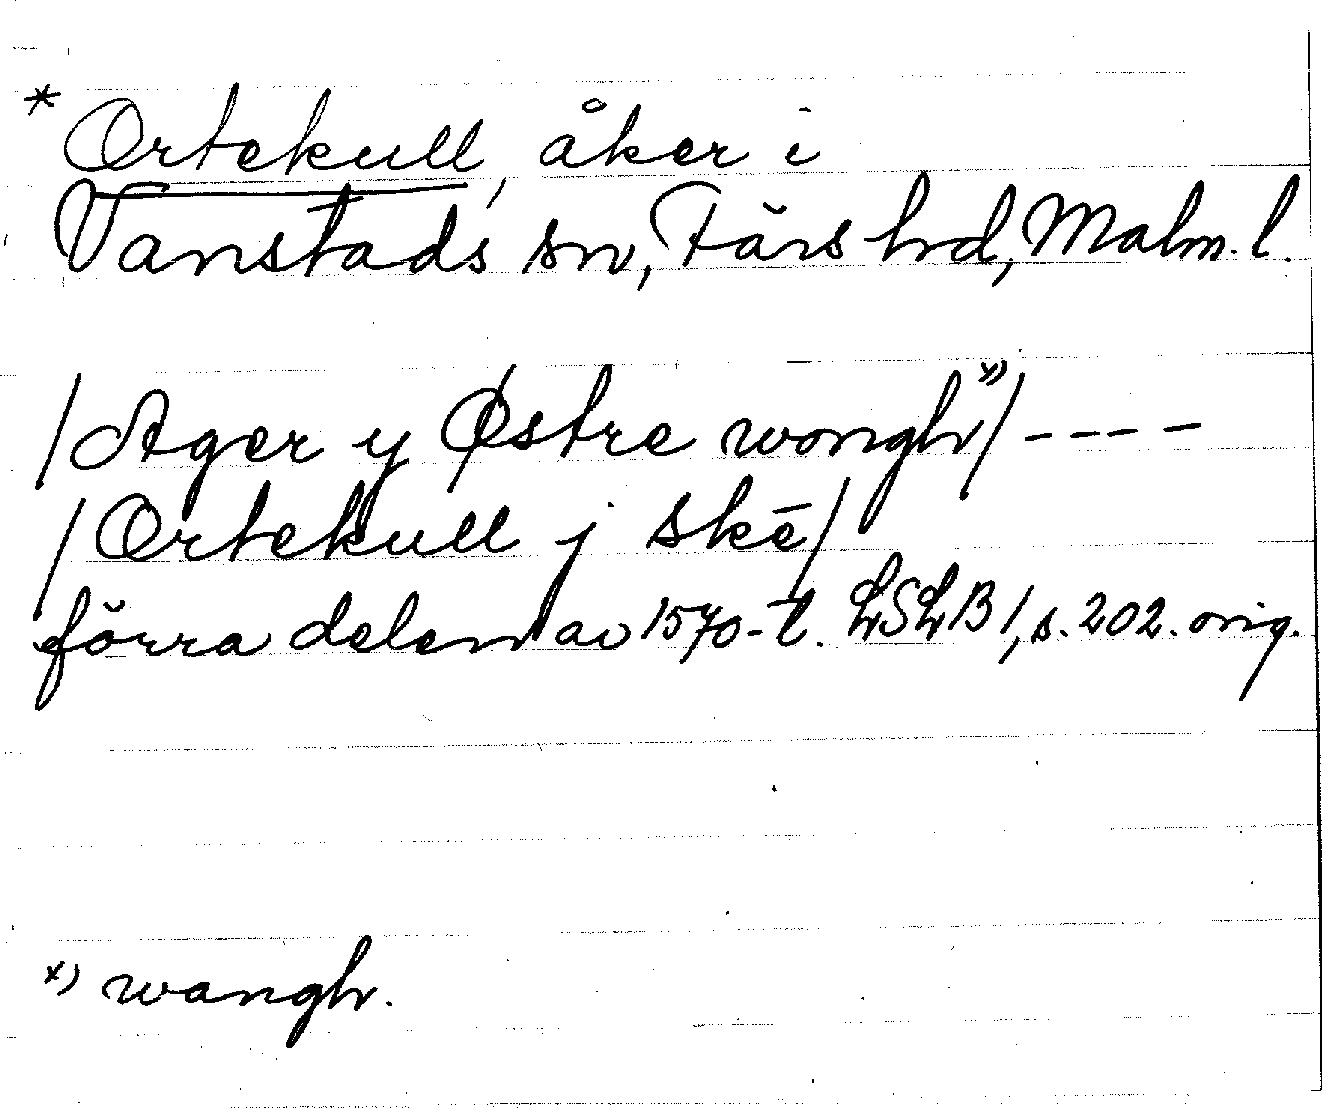 * Ortekull, åker i
Vanstads sn, Färs hd, Malm. l.
/Ager y Østre wongh x)/ ----
/Ortekull j skē/
förra delen av 1570-t. LSLB 1, s. 202. orig.
x) wangh.